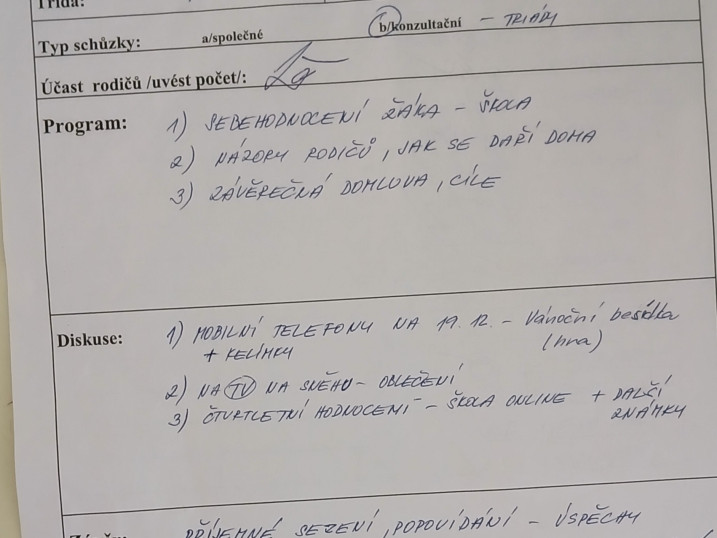 Třída:
Typ schůzky: a/společné b/konzultační - TRIÁDY
Účast rodičů /uvést počet/:
Program: 1) SEBEHODNOCENÍ ŽÁKA - ŠKOLA
2) NÁZORY RODIČŮ, JAK SE DAŘÍ DOMA
3) ZÁVĚREČNÁ DOMLUVA, CÍLE
Diskuse: 1) MOBILNÍ TELEFONY NA 19. 12. - Vánoční besídka
+ KELÍMKY (hra)
2) NA TV NA SNĚHU - OBLEČENÍ
3) ČTVRTLETNÍ HODNOCENÍ - ŠKOLA ONLINE + DALŠÍ
ZNÁMKY
PŘÍJEMNÉ SEZENÍ, POPOVÍDÁNÍ - ÚSPĚCHY